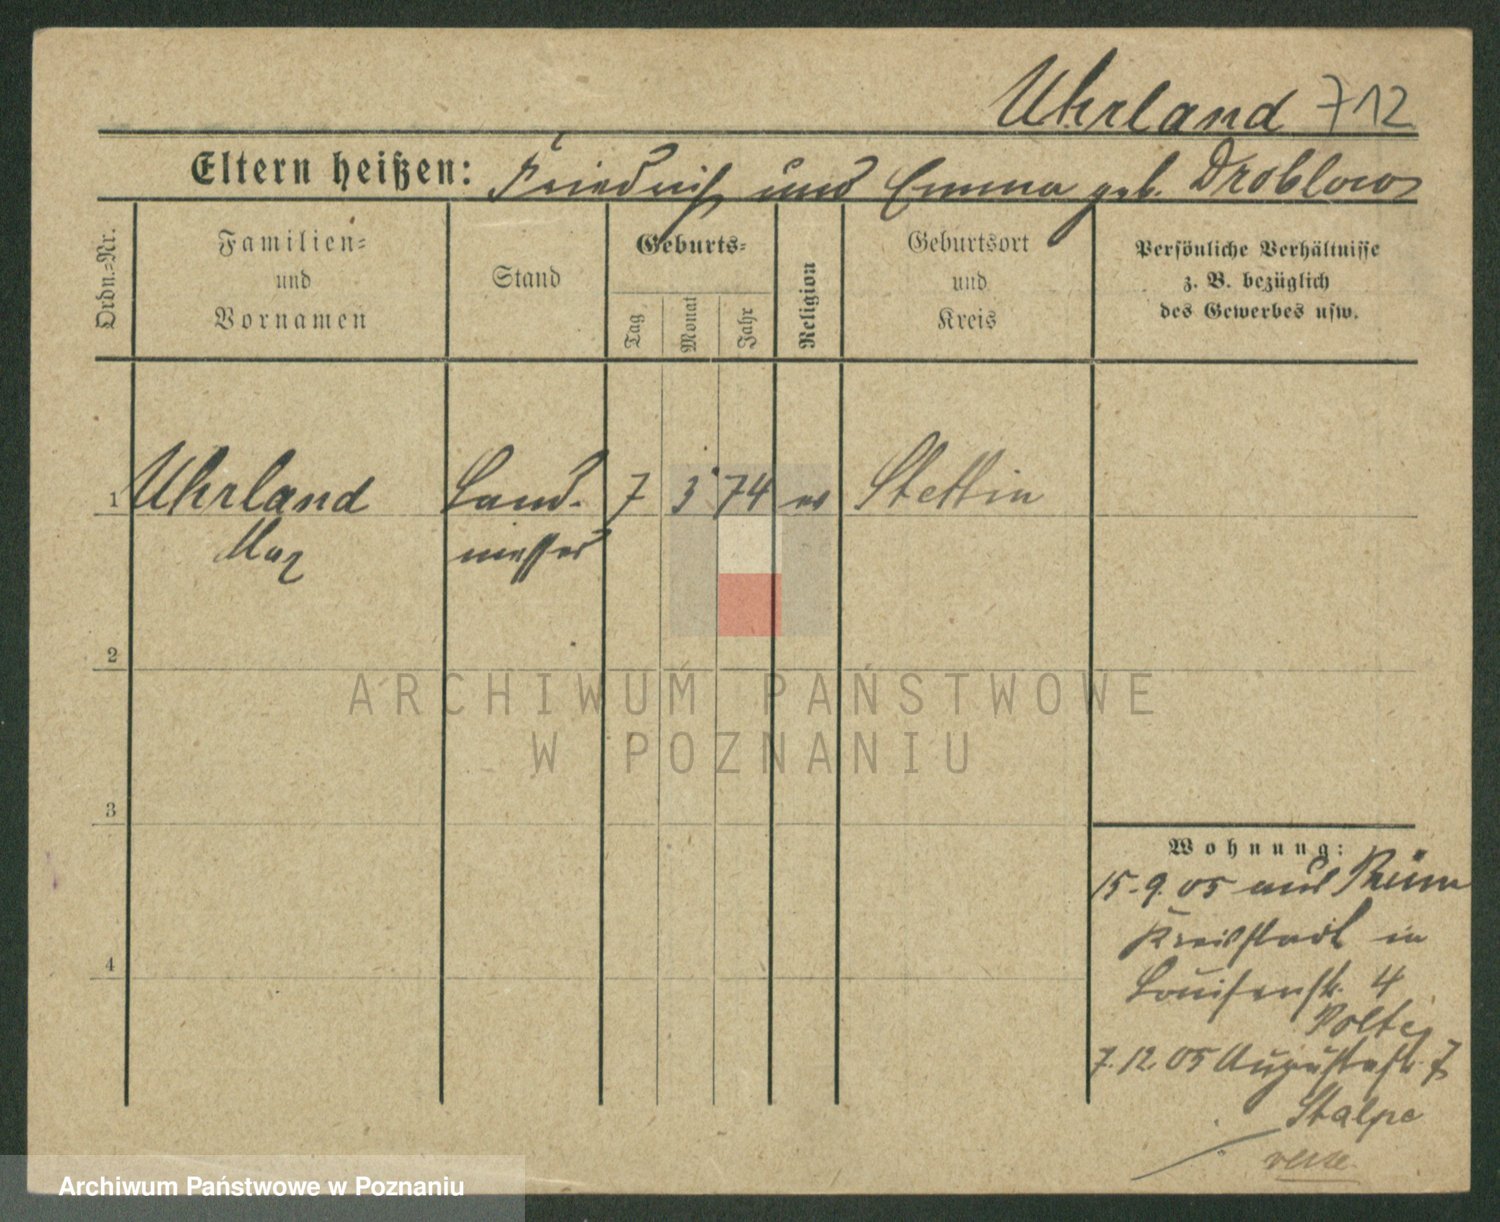 Uhrland 712
Eltern heißen: Friedrich und Emma geb. Droblow
Ordn.-Nr.
Familien-
und
Vornamen
Stand
Geburts-
Tag
Monat
Jahr
Religion
Geburtsort
und
Kreis
Persönliche Verhältnisse
z. B. bezüglich
des Gewerbes usw.
1 Uhrland Land- 7 3 74 ev Stettin
Max messer
2
ARCHIWUM PAŃSTWOWE
W POZNANIU
3
4
Wohnung:
15.9.05 aus
Kreisstadt in
Louisenstr. 4
7.12.05 Augustastr. 7
Stalpe
Archiwum Państwowe w Poznaniu